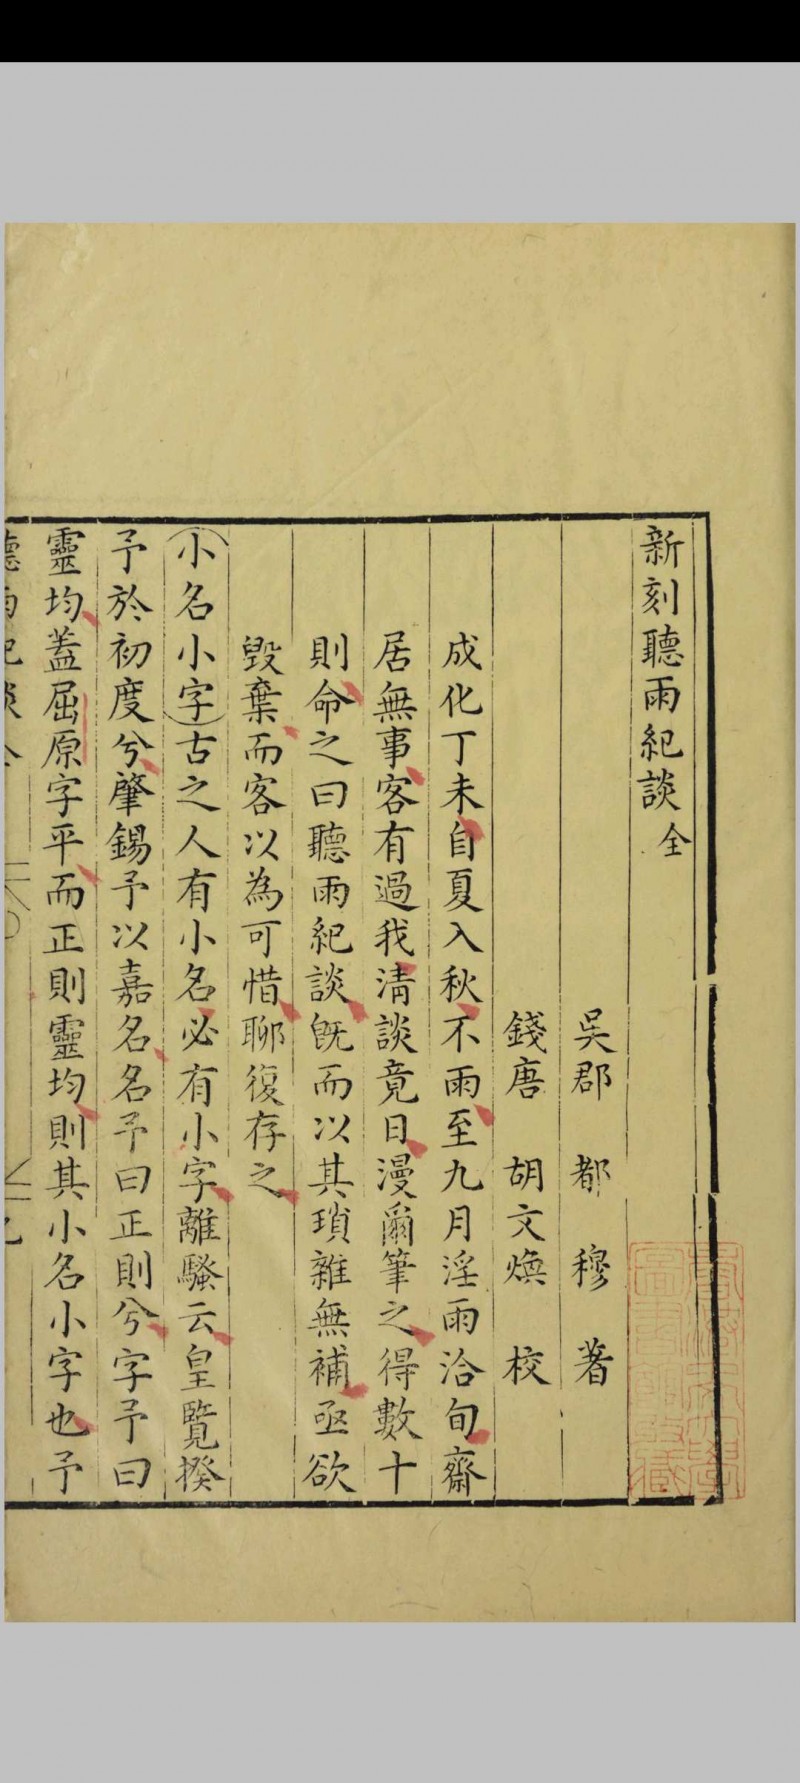 新刻聽雨紀談全
吳郡 都穆 著
錢唐 胡文煥 校
成化丁未自夏入秋不雨至九月淫雨洽旬齋
居無事客有過我清談竟日漫爾筆之得數十
則命之曰聽雨紀談旣而以其瑣雜無補亟欲
毀棄而客以為可惜聊復存之
小名小字古之人有小名必有小字離騷云皇覽揆
予於初度兮肇錫予以嘉名名予曰正則兮字予曰
靈均蓋屈原字平而正則靈均則其小名小字也予
聽雨紀談